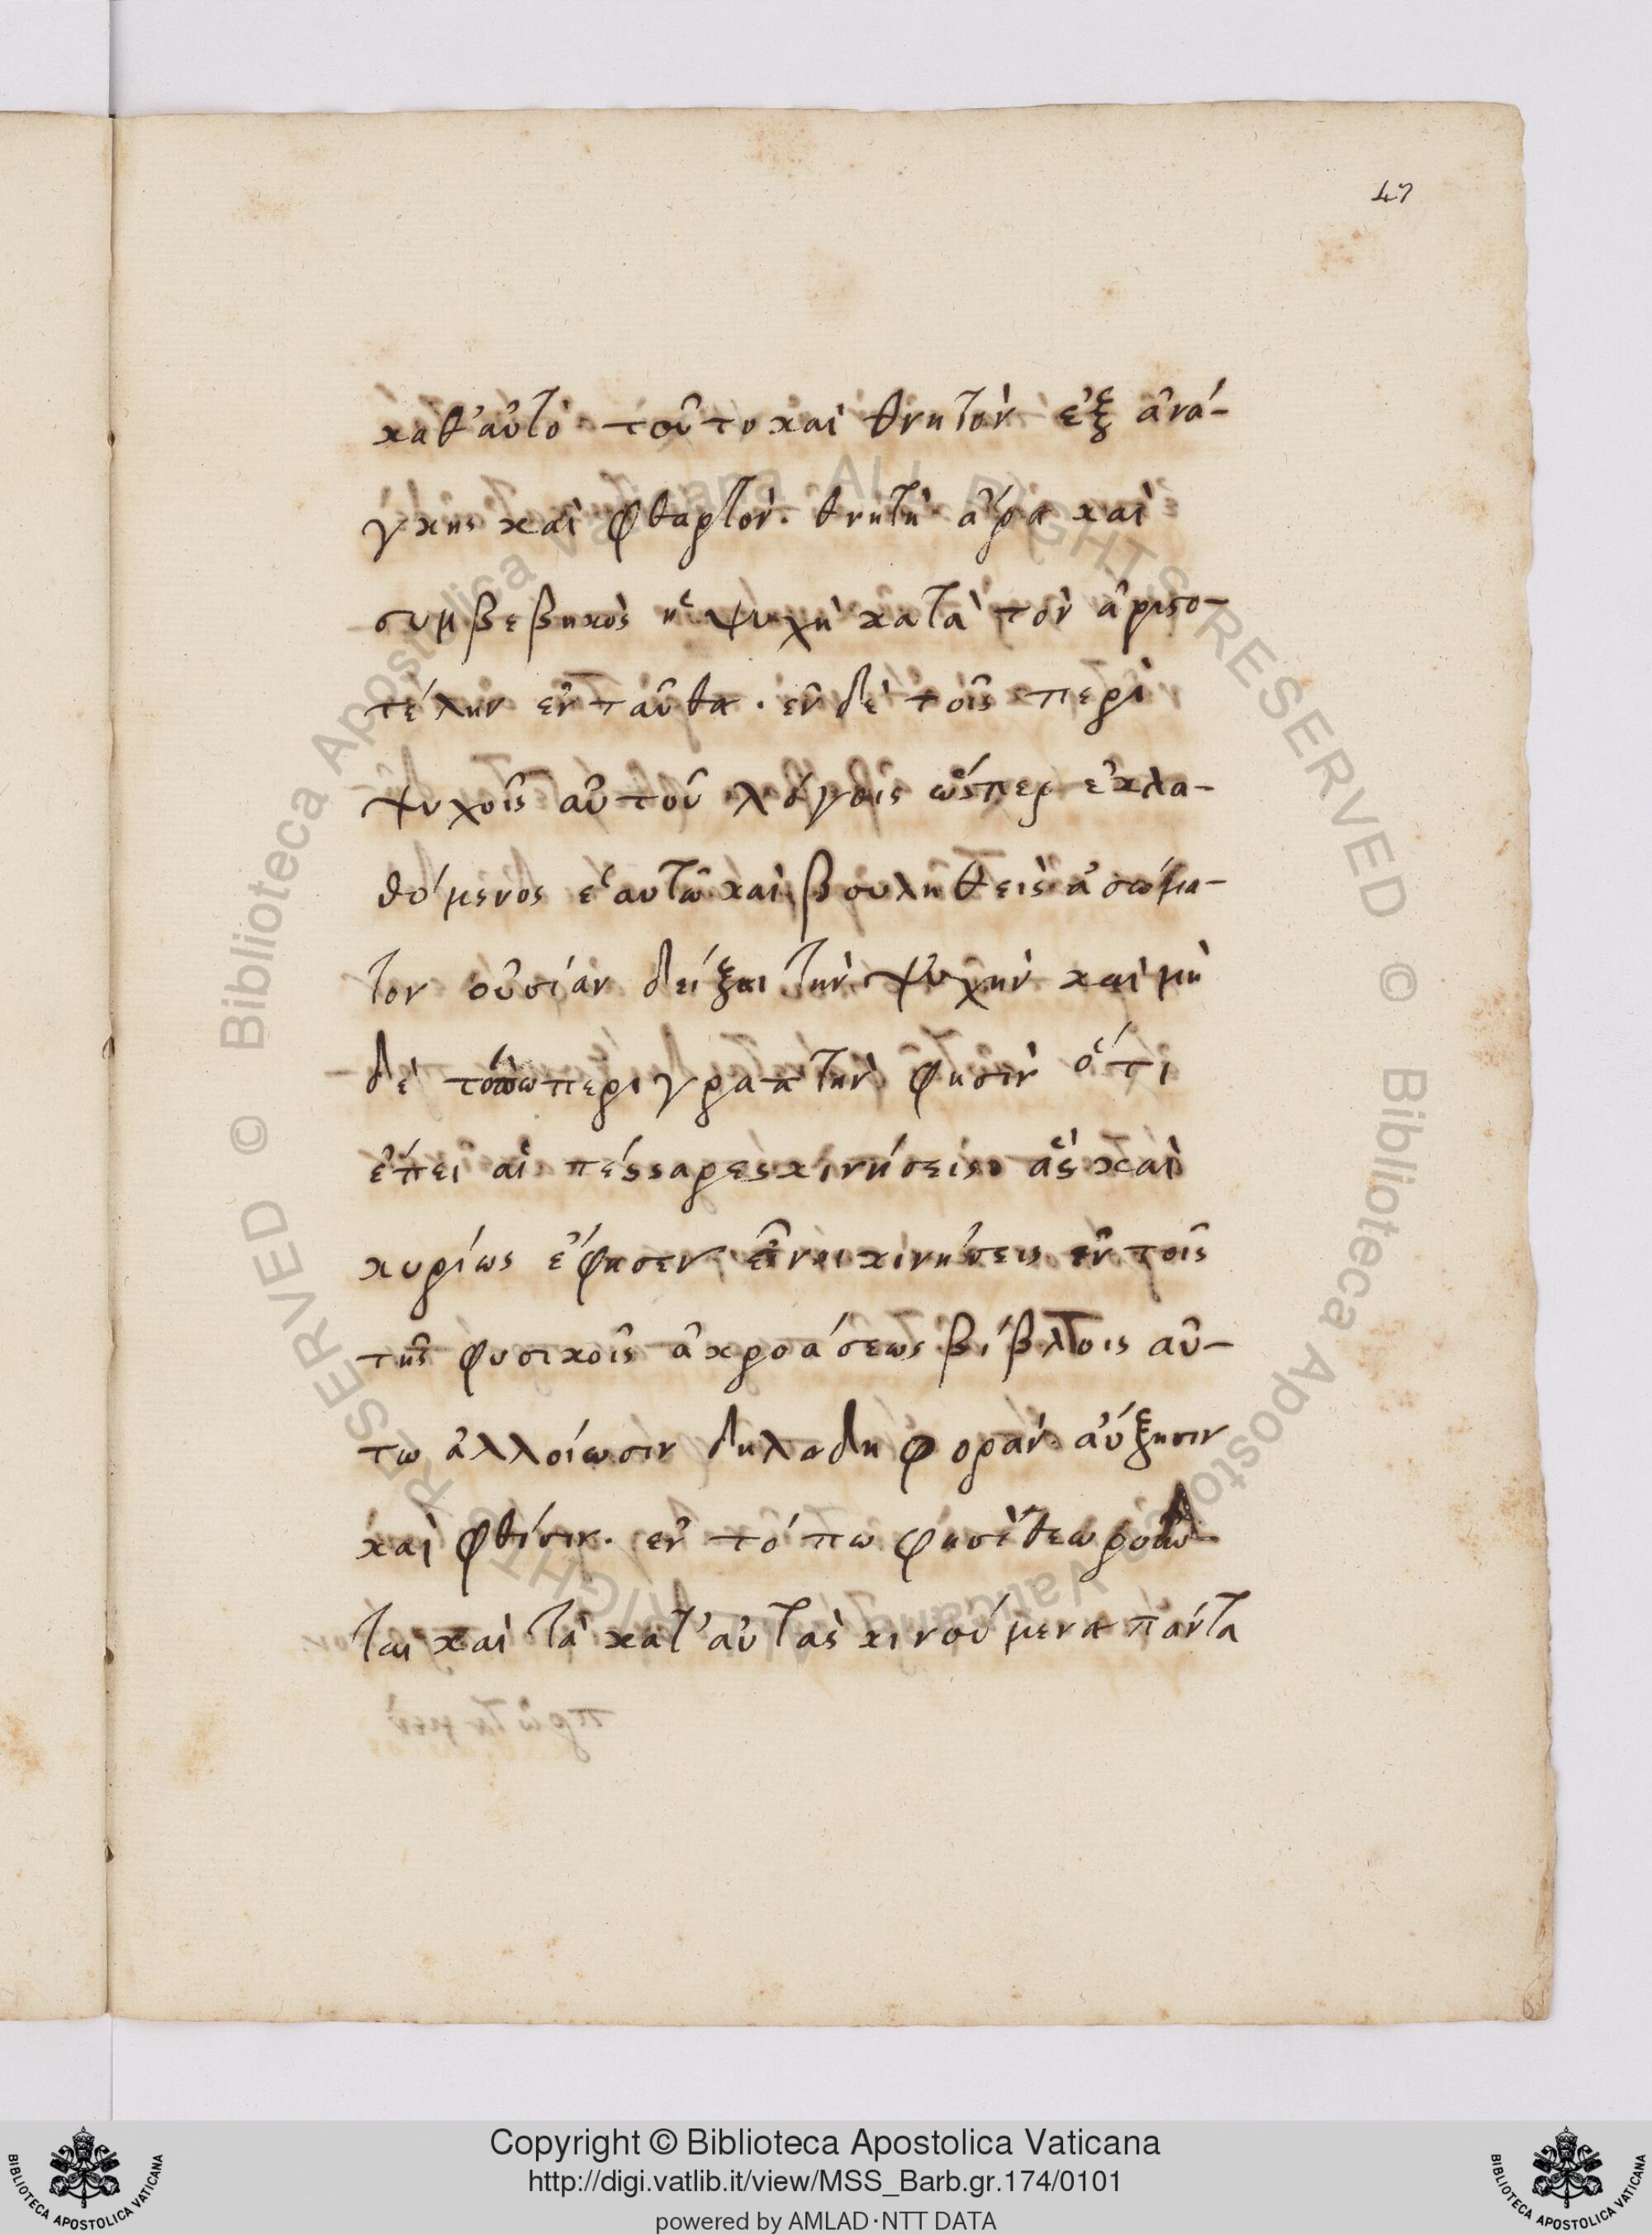 47
καθ' αὑτὸ τοῦτο καὶ θνητὸν ἐξ ἀνά-
γκης καὶ φθαρτόν. θνητὴ ἄρα καὶ
συμβεβηκὸς ἡ ψυχὴ κατὰ τὸν ἀριστο-
τέλην ἐνταῦθα. ἐν δὲ τοῖς περὶ
ψυχοῖς αὐτοῦ λόγοις ὥσπερ ἐκλα-
θόμενος ἑαυτῶ καὶ βουληθεὶς ἀσώμα-
τον οὐσίαν δεῖξαι τὴν ψυχὴν καὶ μὴ
δὲ τόπω περιγραπτὴν φησὶν ὅτι
ἐπεὶ αἱ τέσσαρες κινήσεις ἃς καὶ
κυρίως ἔφησεν εἶναι κινήσεις ἐν τοῖς
τῆς φυσικοῖς ἀκροάσεως βίβλοις αὐ-
τω ἀλλοίωσιν δηλαδὴ φορὰν αὔξησιν
καὶ φθίσιν. ἐν τόπω φησὶ θεωροῦν
ται καὶ τὰ κατ' αὐτὰς κινούμενα πάντα
© Biblioteca Apostolica Vaticana ALL RIGHTS RESERVED
© Biblioteca Apostolica Vaticana ALL RIGHTS RESERVED
BIBLIOTECA APOSTOLICA VATICANA
Copyright © Biblioteca Apostolica Vaticana
http://digi.vatlib.it/view/MSS_Barb.gr.174/0101
powered by AMLAD·NTT DATA
BIBLIOTECA APOSTOLICA VATICANA